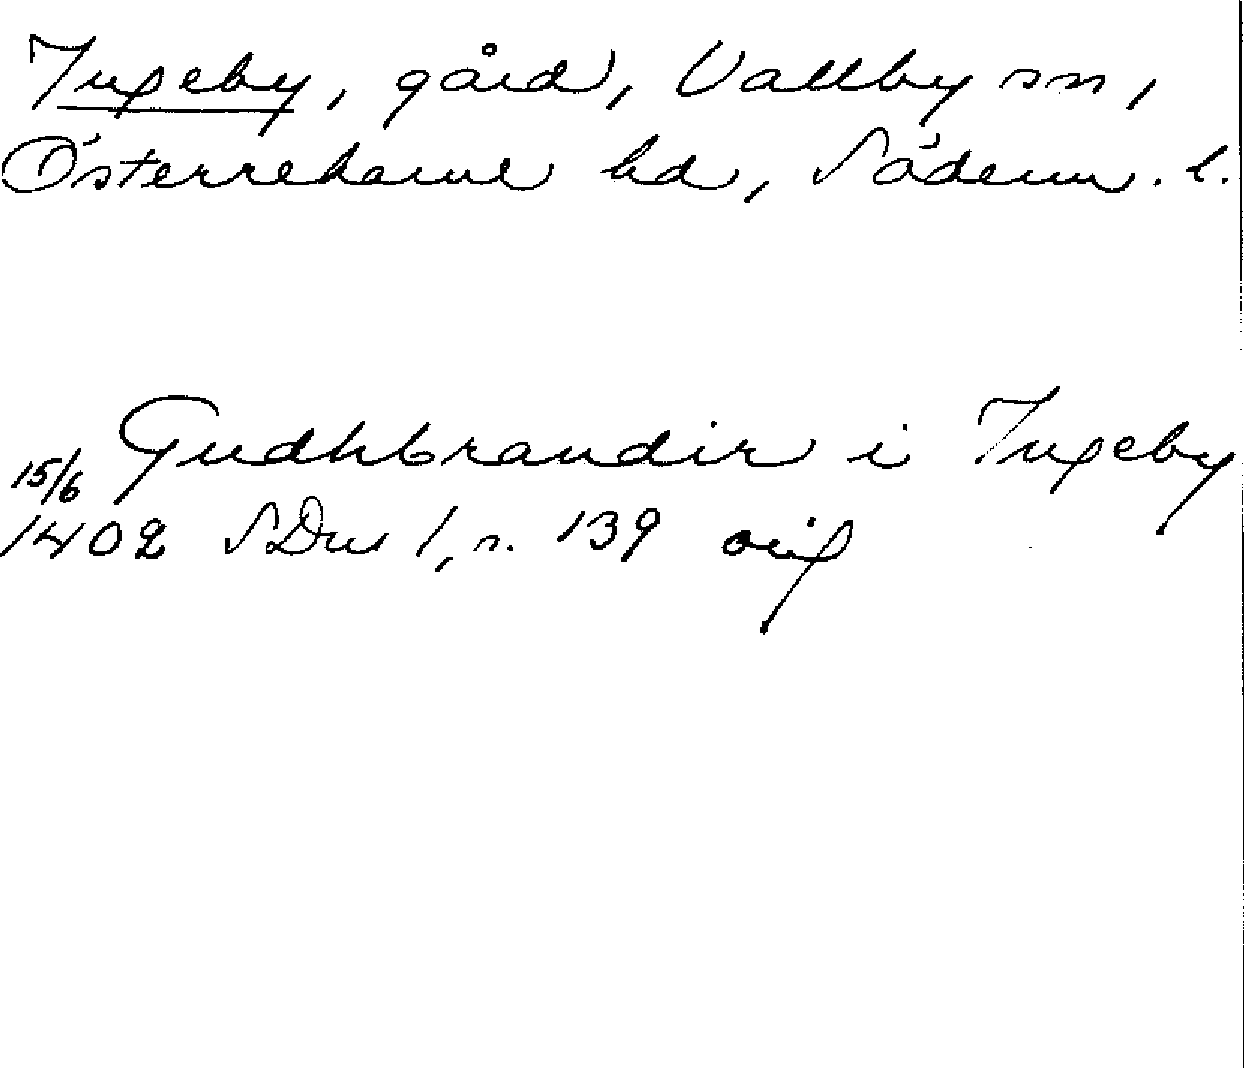 Ingeby, gård, Vallby sn,
Österrekarne hd, Söderm. l.
Gudhbrandir i Ingeby
15/6
1402 SDns 1, s. 139 orig